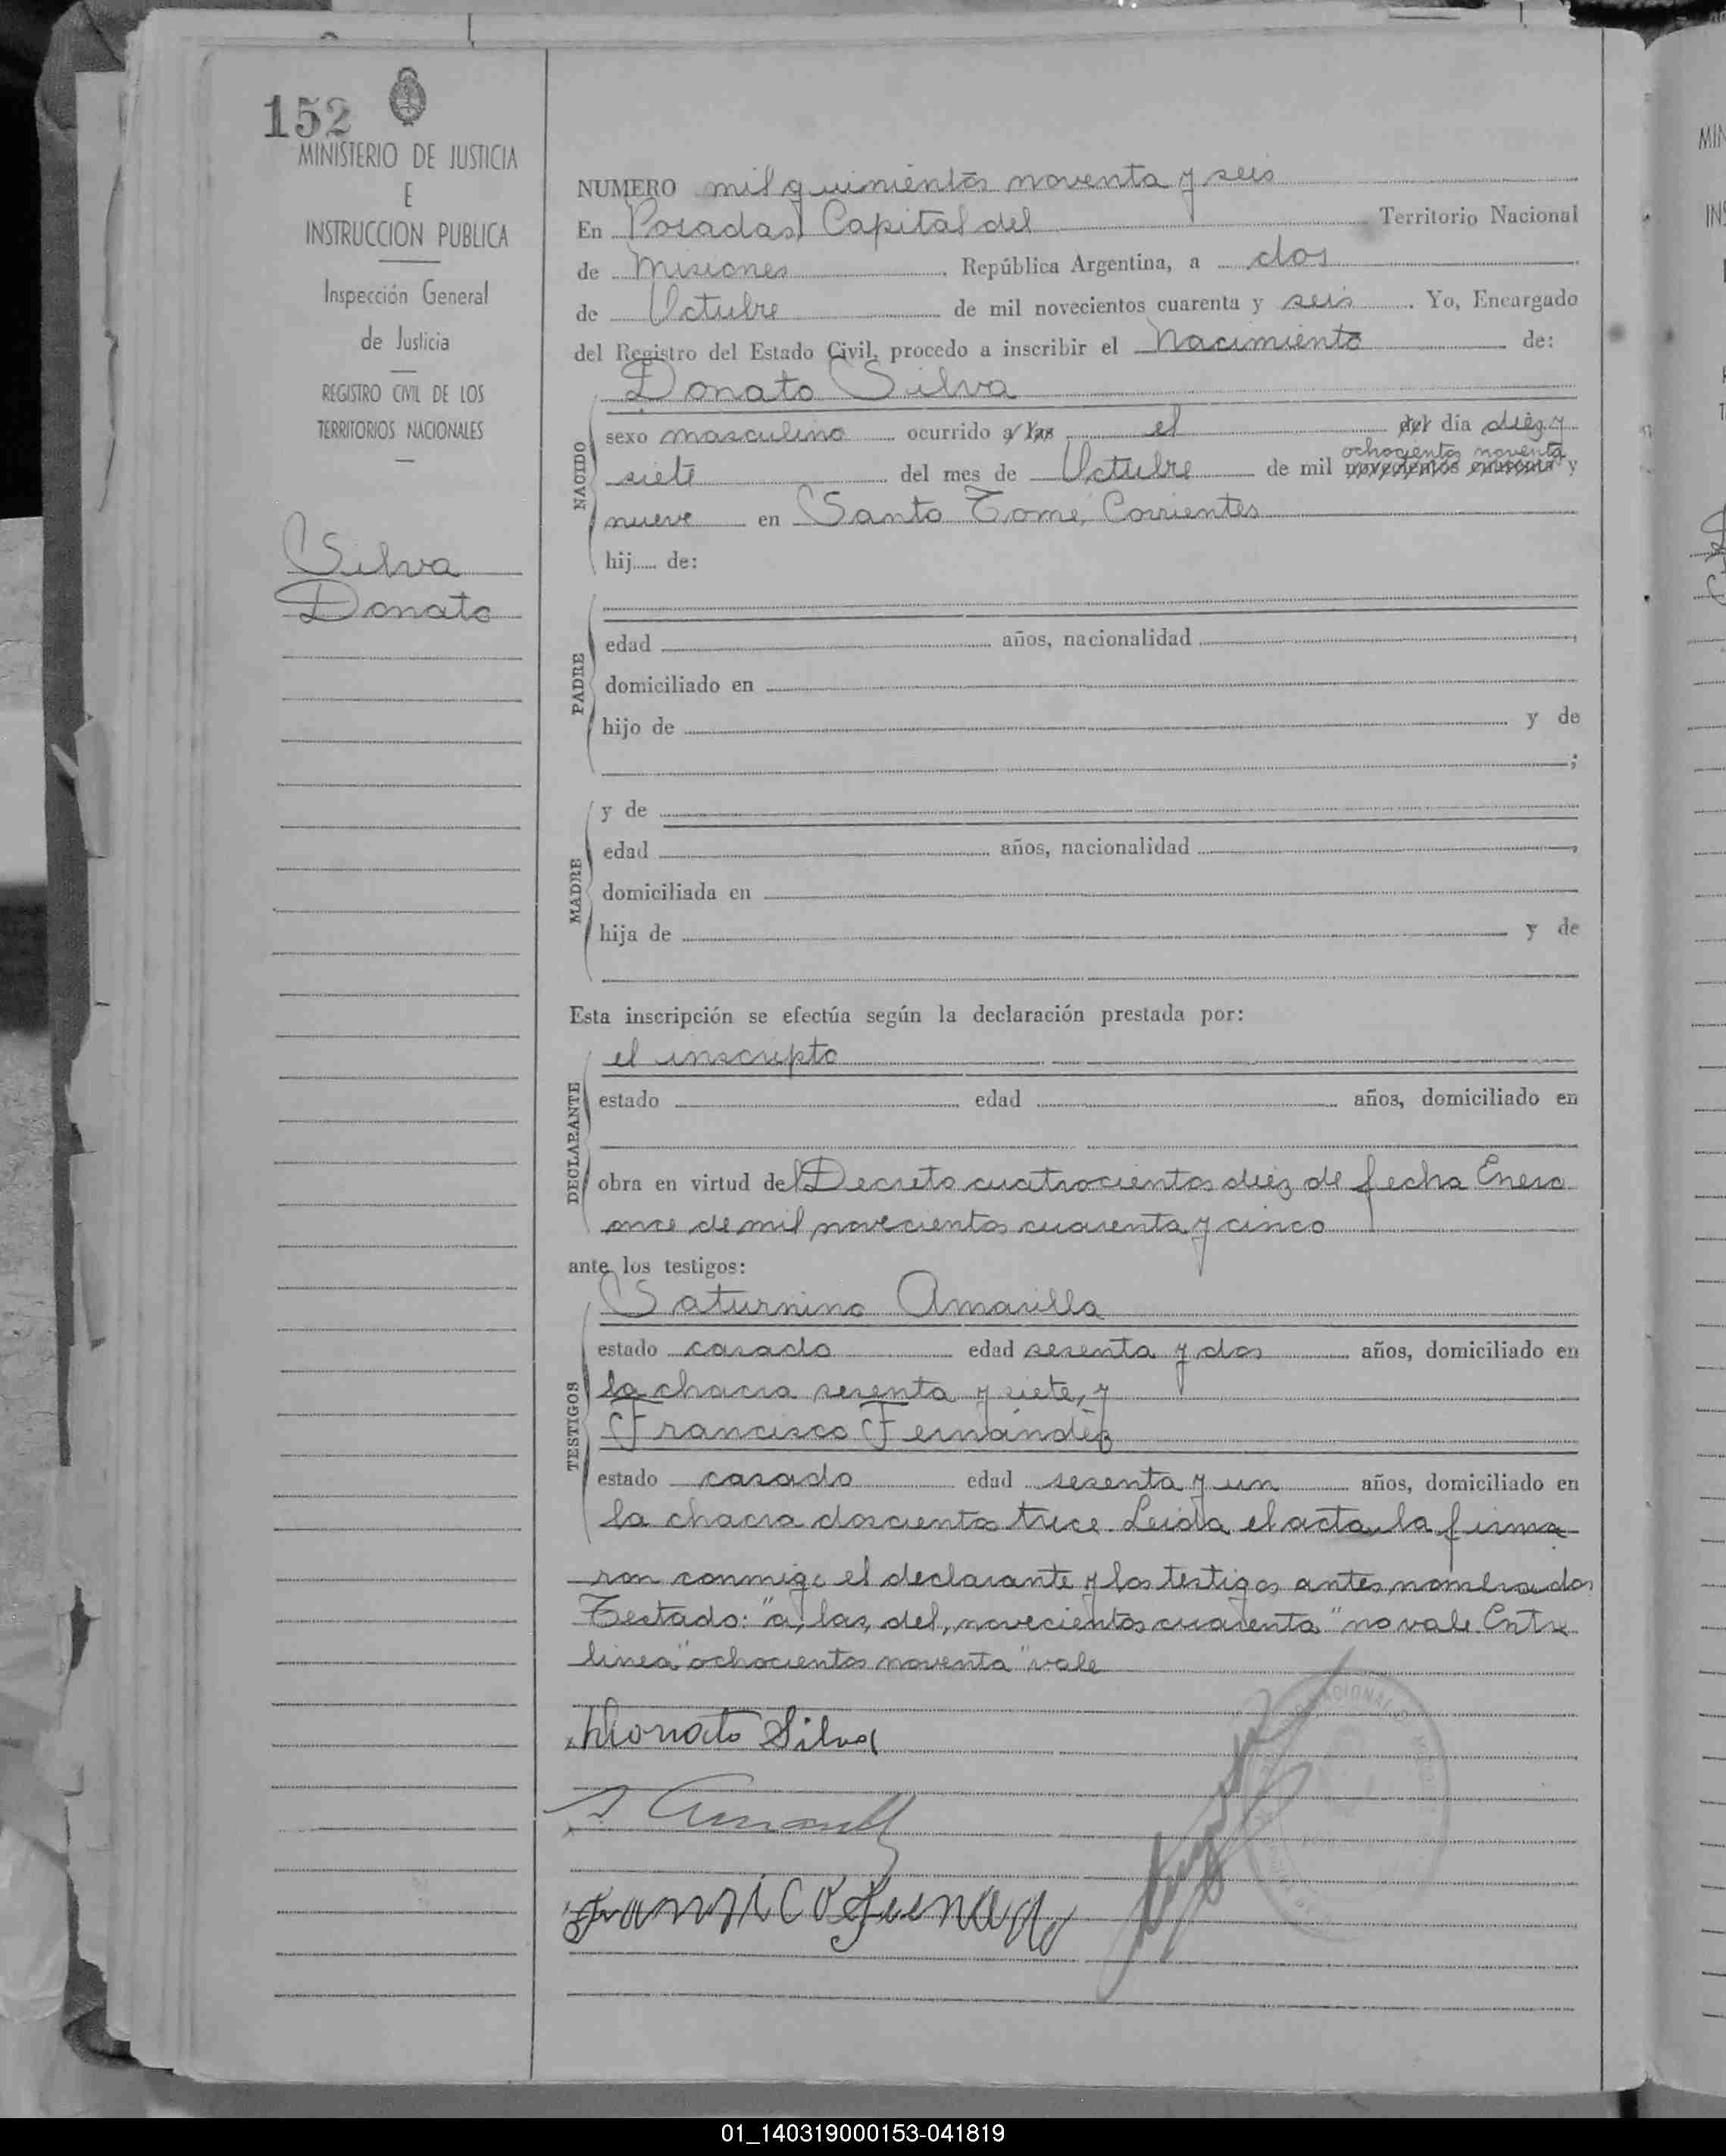 152
MINISTERIO DE JUSTICIA
E
INSTRUCCION PUBLICA
Inspección General
de Justicia
REGISTRO CIVIL DE LOS
TERRITORIOS NACIONALES
Silva
Donato
NUMERO mil quinientos noventa y seis
En Posadas, Capital del Territorio Nacional
de Misiones República Argentina, a dos
de Octubre de mil novecientos cuarenta y seis. Yo, Encargado
del Registro del Estado Civil, procedo a inscribir el Nacimiento de:
Donato Silva
NACIDO
sexo masculino ocurrido a las el del día diez y
ochocientos noventa
siete del mes de Octubre de mil novecientos cuarenta y
nueve en Santo Tomé, Corrientes
hij de:
PADRE
edad años, nacionalidad ,
domiciliado en
hijo de y de
;
MADRE
y de
edad años, nacionalidad ,
domiciliada en
hija de y de
Esta inscripción se efectúa según la declaración prestada por:
el inscripto
DECLARANTE
estado edad años, domiciliado en
obra en virtud del Decreto cuatrocientos diez de fecha Enero
once de mil novecientos cuarenta y cinco
ante los testigos:
Saturnino Amarilla
TESTIGOS
estado casado edad sesenta y dos años, domiciliado en
la chacra sesenta y siete, y
Francisco Fernández
estado casado edad sesenta y un años, domiciliado en
la chacra doscientos trece. Leida el acta, la firma
ron conmigo el declarante y los testigos antes nombrados
Testado: "a, las, del, novecientos cuarenta" no vale. Entre
linea "ochocientos noventa" vale
Donato Silva
S Amarilla
NACIONAL
01_140319000153-041819